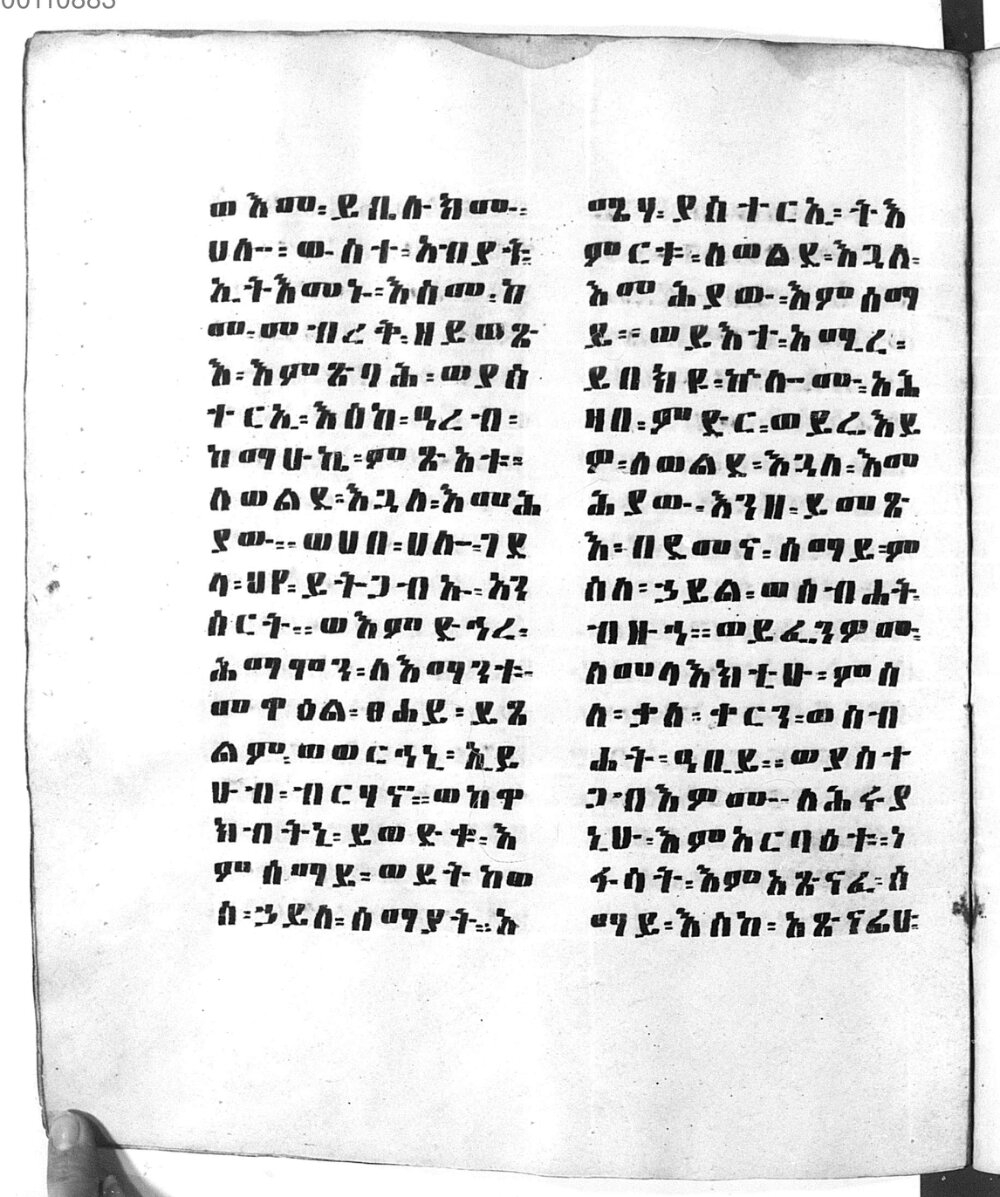 00110883
ወእመ፡ይቤሉክሙ፡
ሀሎ፡ውስተ፡አብያት፡
ኢትእመኑ፡እስመ፡ከ
መ፡መብረቅ፡ዘይወፅ
እ፡እምጽባሕ፡ወያስ
ተርኢ፡እስከ፡ዓረብ፡
ከማሁኬ፡ምጽአቱ፡
ለወልደ፡እጓለ፡እመሕ
ያው፡፡ወሀበ፡ሀሎ፡ገደ
ላ፡ህየ፡ይትጋብኡ፡አን
ስርት፡፡ወእምድኅረ፡
ሕማማን፡ለእማንቱ፡
መዋዕል፡ፀሐይ፡ይጼ
ልም፡ወወርኅኒ፡ኢይ
ሁብ፡ብርሃኖ፡፡ወከዋ
ክብትኒ፡ይወድቁ፡እ
ምሰማይ፡ወይትከወ
ስ፡ኃይለ፡ሰማያት፡፡አ
ሜሃ፡ያስተርኢ፡ትእ
ምርቱ፡ለወልደ፡እጓለ፡
እመሕያው፡እምሰማ
ይ፡፡ወይእተ፡አሚረ፡
ይበክዩ፡ኵሎሙ፡አሕ
ዛበ፡ምድር፡ወይሬእይ
ዎ፡ለወልደ፡እጓለ፡እመ
ሕያው፡እንዘ፡ይመጽ
እ፡በደመና፡ሰማይ፡ም
ስለ፡ኃይል፡ወስብሐት
ብዙኅ፡፡ወይፌንዎሙ፡
ለመላእክቲሁ፡ምስ
ለ፡ቃለ፡ቀርን፡ወስብ
ሐት፡ዓቢይ፡፡ወያስተ
ጋብእዎሙ፡ለኅሩያ
ኒሁ፡እምአርባዕቱ፡ነ
ፋሳት፡እምአጽናፈ፡ሰ
ማይ፡እስከ፡አጽናፊሁ፡